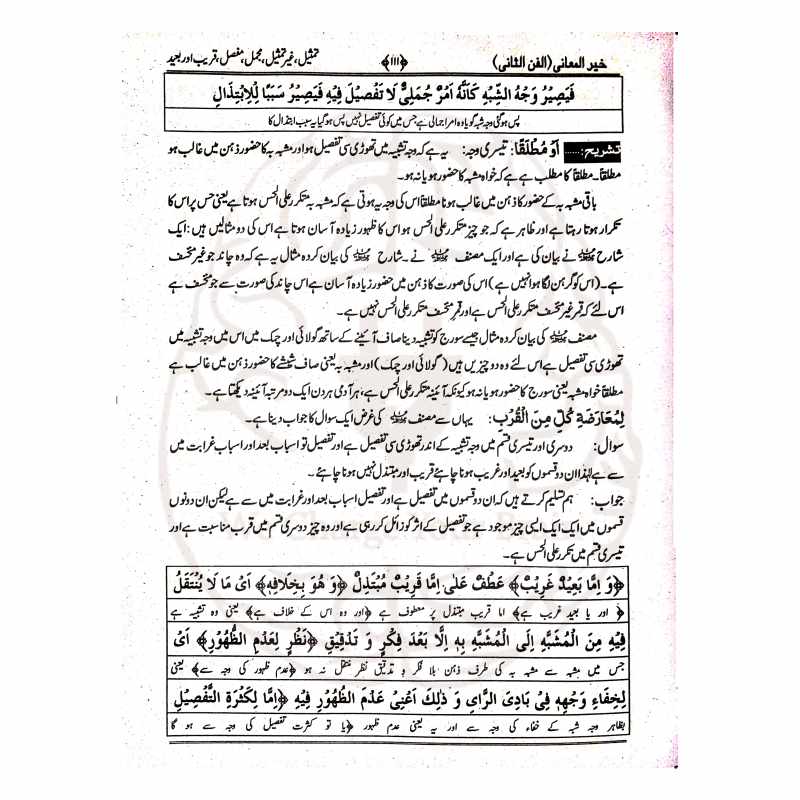 خیر المعانی (الفن الثانی) ﴿۱۱۱﴾ تمثیل، غیر تمثیل، مجمل، مفصل، قریب اور بعید
فَيَصِيْرُ وَجْهُ الشِّبْهِ كَأَنَّهُ اَمْرٌ جُمَلِىٌّ لَا تَفْصِيْلَ فِيْهِ فَيَصِيْرُ سَبَبًا لِّلْاِبْتِذَالِ
پس ہوگئی وجہ شبہ گویا وہ امر اجمالی ہے جس میں کوئی تفصیل نہیں پس ہو گیا یہ سبب ابتذال کا
تشریح:...... اَوْ مُطْلَقًا: تیسری وجہ: یہ ہے کہ وجہ تشبیہ میں تھوڑی سی تفصیل ہو اور مشبہ بہ کا حضور ذہن میں غالب ہو
مطلقاً۔ مطلقاً کا مطلب ہے ہے کہ خواہ مشبہ کا حضور ہو یا نہ ہو۔
باقی مشبہ بہ کے حضور کا ذہن میں غالب ہونا مطلقاً اس کی وجہ یہ ہوتی ہے کہ مشبہ بہ متکرر علی الحس ہوتا ہے یعنی حس پر اس کا
تکرار ہوتا رہتا ہے اور ظاہر ہے کہ جو چیز متکرر علی الحس ہو اس کا ظہور زیادہ آسان ہوتا ہے اس کی دو مثالیں ہیں: ایک
شارح نے بیان کی ہے اور ایک مصنف نے۔ شارح کی بیان کردہ مثال یہ ہے کہ وہ چاند جو غیر منخسف
ہے۔ (اس کو گرہن لگا ہوا نہیں ہے) اس کی صورت کا ذہن میں حضور زیادہ آسان ہے اس چاند کی صورت سے جو منخسف ہے
اس لئے کہ قمر غیر منخسف متکرر علی الحس ہے اور قمر منخسف متکرر علی الحس نہیں ہے۔
مصنف کی بیان کردہ مثال جیسے سورج کو تشبیہ دینا صاف آئینے کے ساتھ گولائی اور چمک میں اس میں وجہ تشبیہ میں
تھوڑی سی تفصیل ہے اس لئے وہ دو چیزیں ہیں (گولائی اور چمک) اور مشبہ بہ یعنی صاف شیشے کا حضور ذہن میں غالب ہے
مطلقاً خواہ مشبہ یعنی سورج کا حضور ہو یا نہ ہو کیونکہ آئینہ متکرر علی الحس ہے، ہر آدمی ہر دن ایک دو مرتبہ آئینہ دیکھتا ہے۔
لِمُعَارَضَةِ كُلٍّ مِنَ الْقُرْبِ: یہاں سے مصنف کی غرض ایک سوال کا جواب دینا ہے۔
سوال: دوسری اور تیسری قسم میں وجہ تشبیہ کے اندر تھوڑی سی تفصیل ہے اور تفصیل تو اسباب بعد اور اسباب غرابت میں
سے ہے لہٰذا ان دو قسموں کو بعید اور غریب ہونا چاہئے قریب اور مبتذل نہیں ہونا چاہئے۔
جواب: ہم تسلیم کرتے ہیں کہ ان دو قسموں میں تفصیل ہے اور تفصیل اسباب بعد اور غرابت میں سے ہے لیکن ان دونوں
قسموں میں ایک ایک ایسی چیز موجود ہے جو تفصیل کے اثر کو زائل کر رہی ہے اور وہ چیز دوسری قسم میں قرب مناسبت ہے اور
تیسری قسم میں تکرر علی الحس ہے۔
﴿وَ اِمَّا بَعِيْدٌ غَرِيْبٌ﴾ عَطْفٌ عَلٰى اِمَّا قَرِيْبٌ مُبْتَذِلٌ ﴿وَ هُوَ بِخِلَافِهٖ﴾ اَىْ مَا لَا يُنْتَقَلُ
﴿اور یا بعید غریب ہے﴾ اما قریب مبتذل پر معطوف ہے ﴿اور وہ اس کے خلاف ہے﴾ یعنی وہ تشبیہ ہے
فِيْهِ مِنَ الْمُشَبَّهِ اِلَى الْمُشَبَّهِ بِهٖ اِلَّا بَعْدَ فِكْرٍ وَ تَدْقِيْقِ ﴿نَظْرٍ لِعَدَمِ الظُّهُوْرِ﴾ اَىْ
جس میں مشبہ سے مشبہ بہ کی طرف ذہن بلا فکر و تدقیق نظر منتقل نہ ہو ﴿عدم ظہور کی وجہ سے﴾ یعنی
لِخِفَاءِ وَجْهِهٖ فِىْ بَادِىَ الرَّاىِ وَ ذٰلِكَ اَعْنِىْ عَدْمَ الظُّهُوْرِ فِيْهِ ﴿اِمَّا لِكَثْرَةِ التَّفْصِيْلِ
بظاہر وجہ شبہ کے خفاء کی وجہ سے اور یہ یعنی عدم ظہور ﴿یا تو کثرت تفصیل کی وجہ سے ہو گا